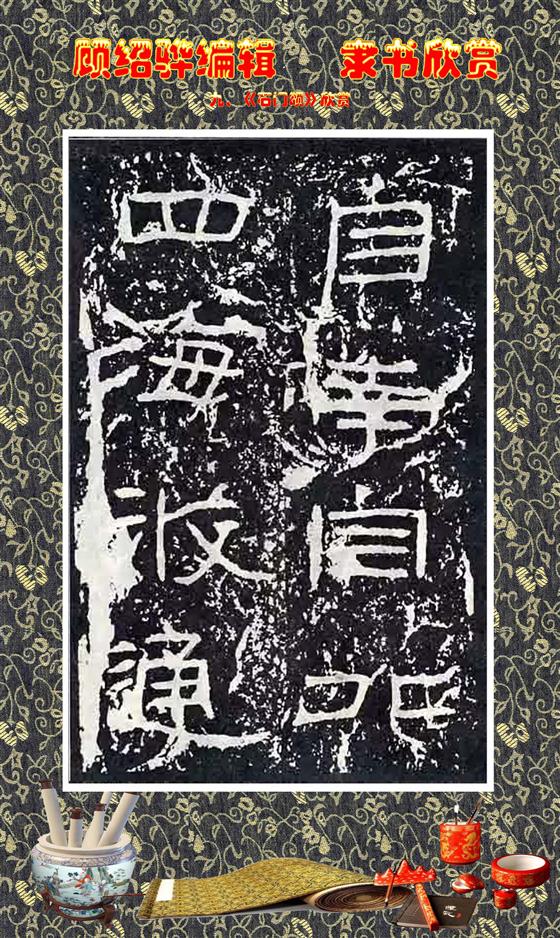 顾绍骅编辑 隶书欣赏
九、《石门颂》欣赏
自南自北
四海攸通